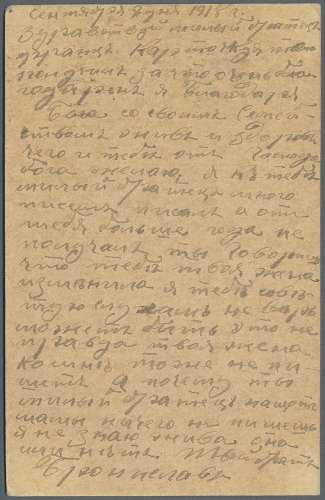 Сентября 2 дня 1918 г.
Здравствуй милый братец
Карточку твою
получил за что очень бла
годарен я благодаря
Бога со своим Семей
ством жив и здоров
чего и тебе от Господа
бога желаю я к тебе
милый братец много
писем писал и от
тебя больше года не
получал ты говориш
что тебе твоя жена
изменила я тебе совѣ
тую не верь
может быть это не
правда твоя жена
ко мне тоже не пи
шет А почему ты
милый братец насчет
мамы ничего не пишешь
я не знаю жива она
или нѣт Твой брат
Бронислав